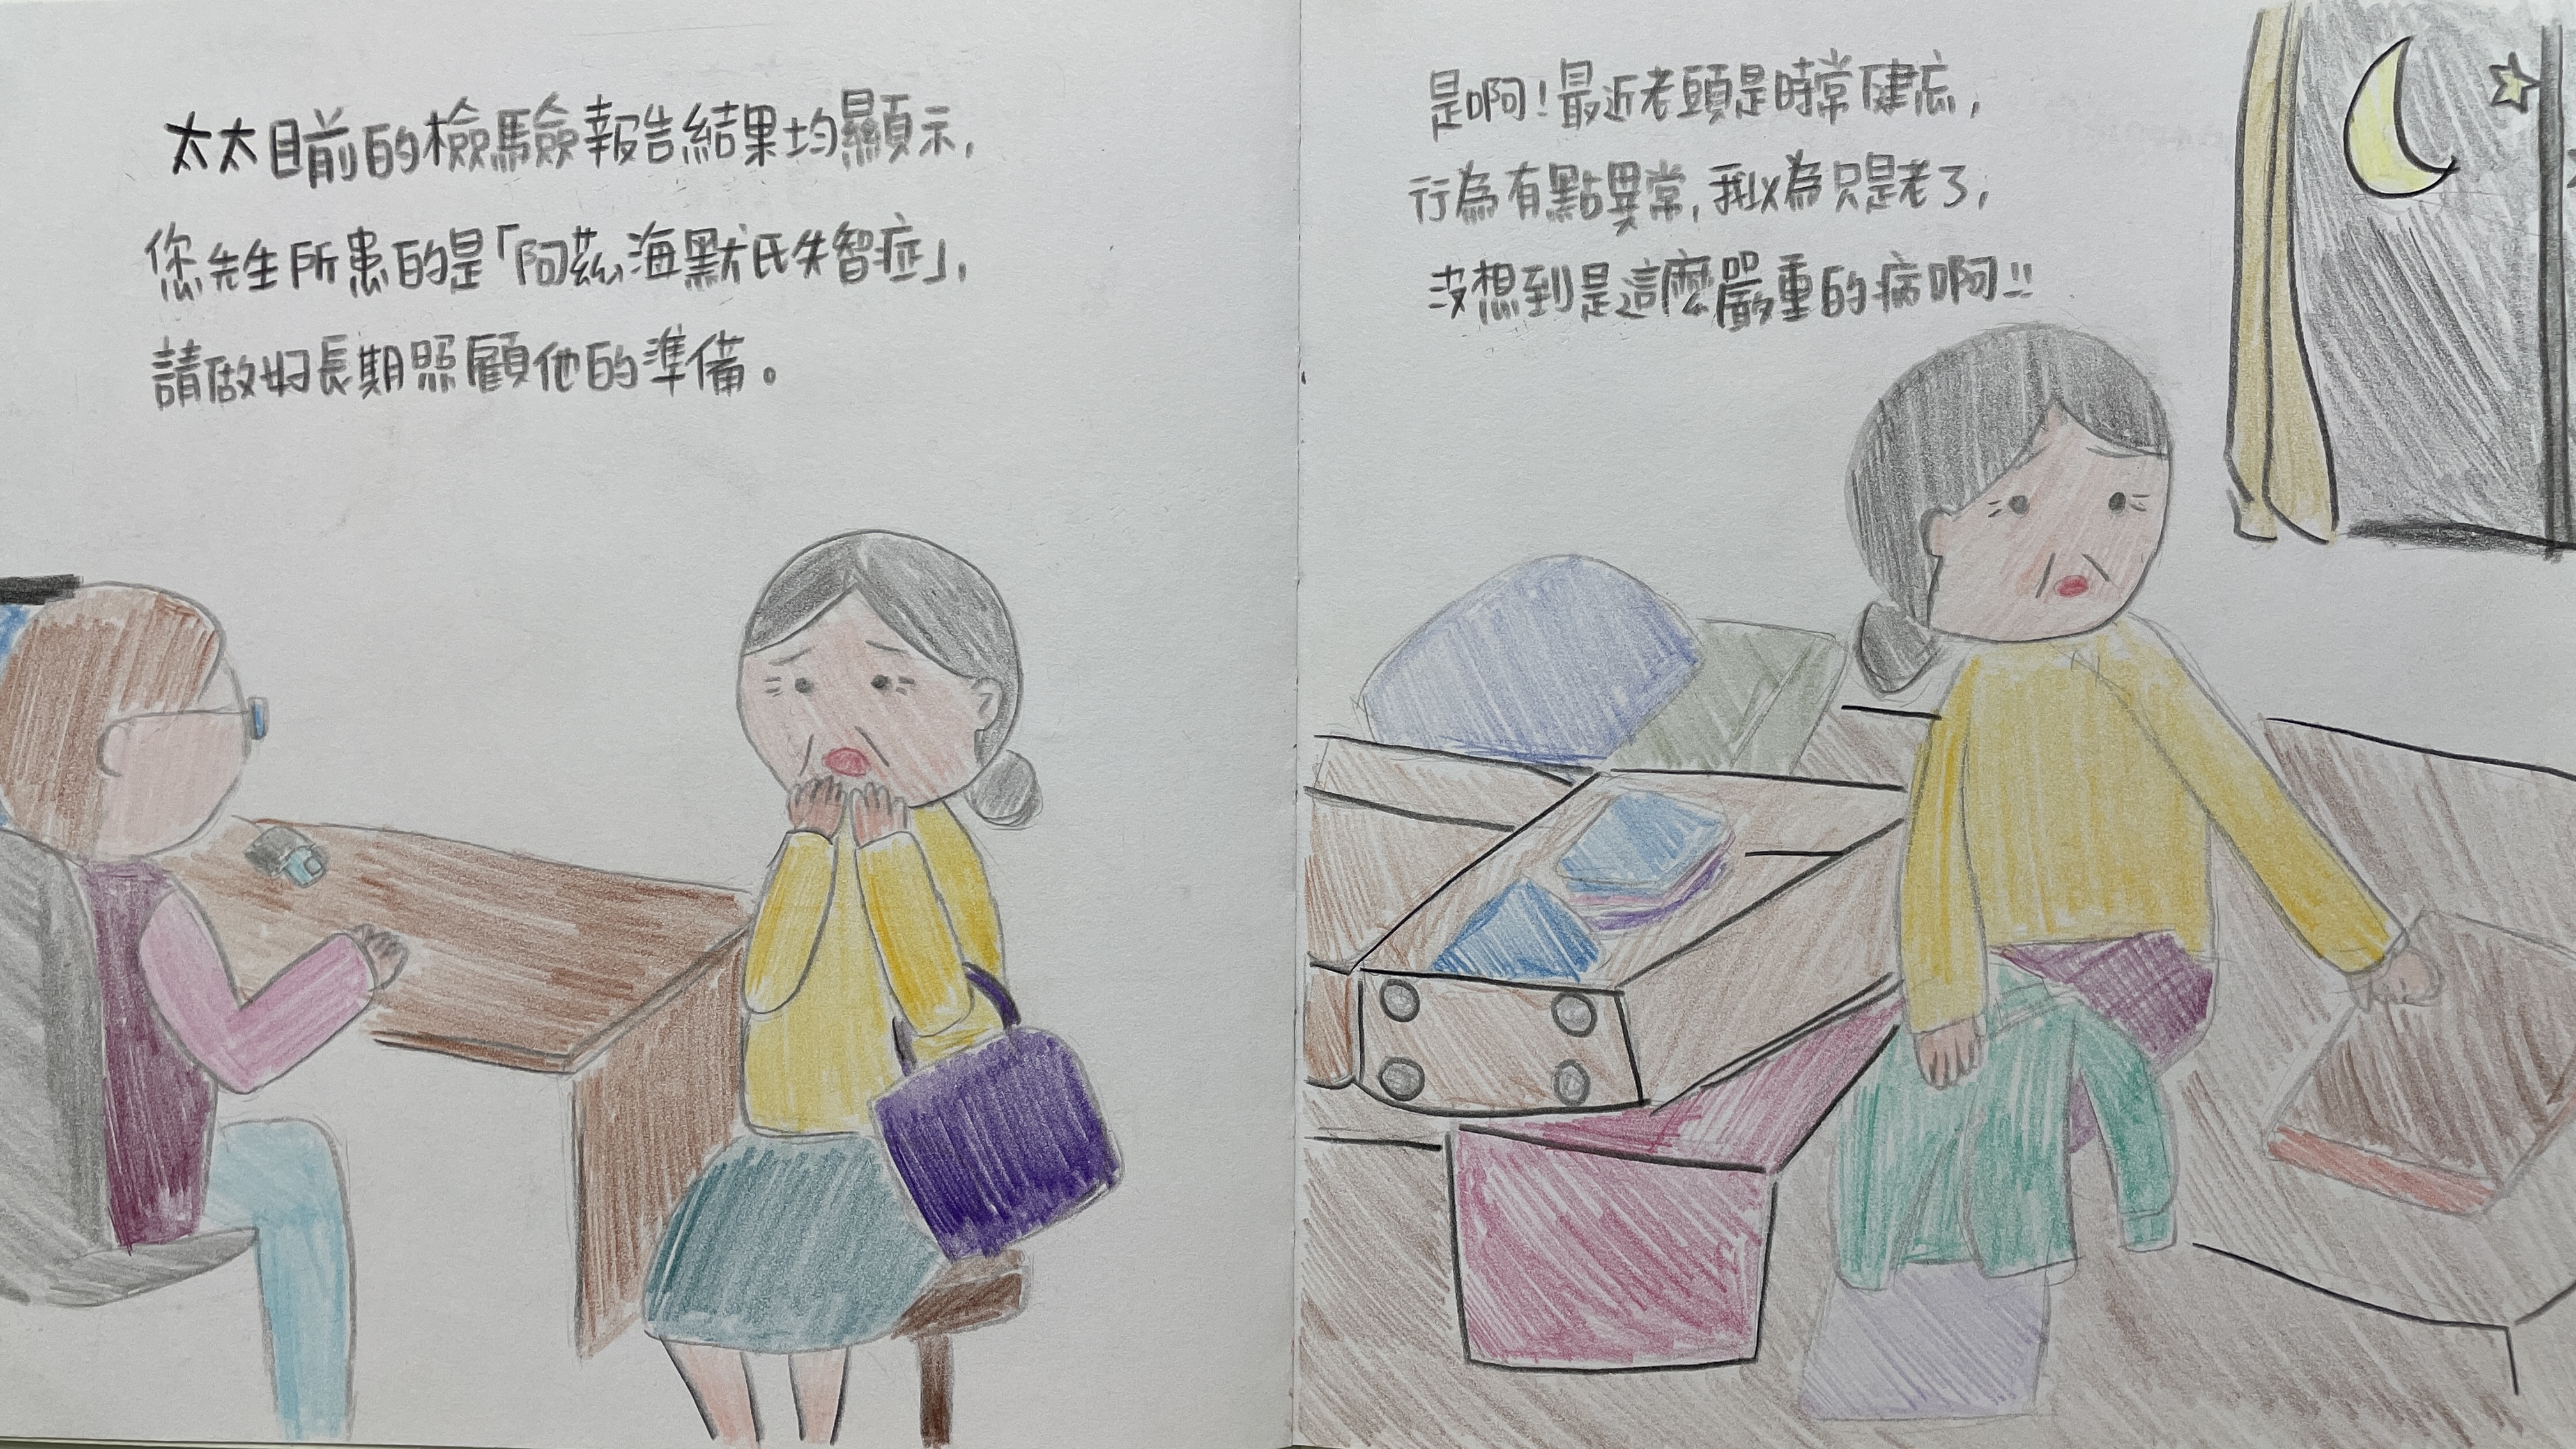 太太目前的檢驗報告結果均顯示,
您先生所患的是「阿茲海默氏失智症」,
請做好長期照顧他的準備。
是啊!最近老頭是時常健忘,
行為有點異常,我以為只是老了,
沒想到是這麼嚴重的病啊!!